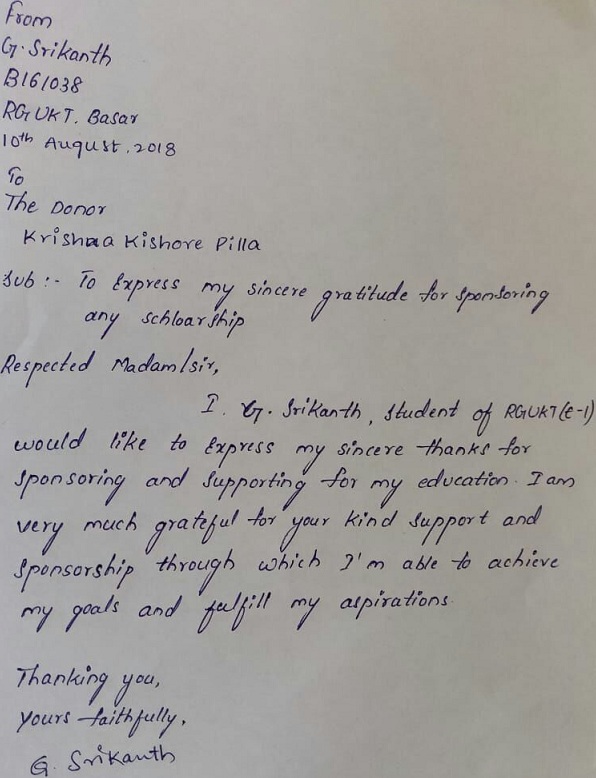 From
G. Srikanth
B161038
RGUKT. Basar
10th August. 2018
To
The Donor
Krishna Kishore Pilla
Sub :- To Express my sincere gratitude for sponsoring
any schloarship
Respected Madam/sir,
I. G. Srikanth, student of RGUKT (E-1)
would like to Express my sincere thanks for
sponsoring and supporting for my education. I am
very much grateful for your kind support and
sponsorship through which I'm able to achieve
my goals and fulfill my aspirations.
Thanking you,
yours faithfully,
G. Srikanth